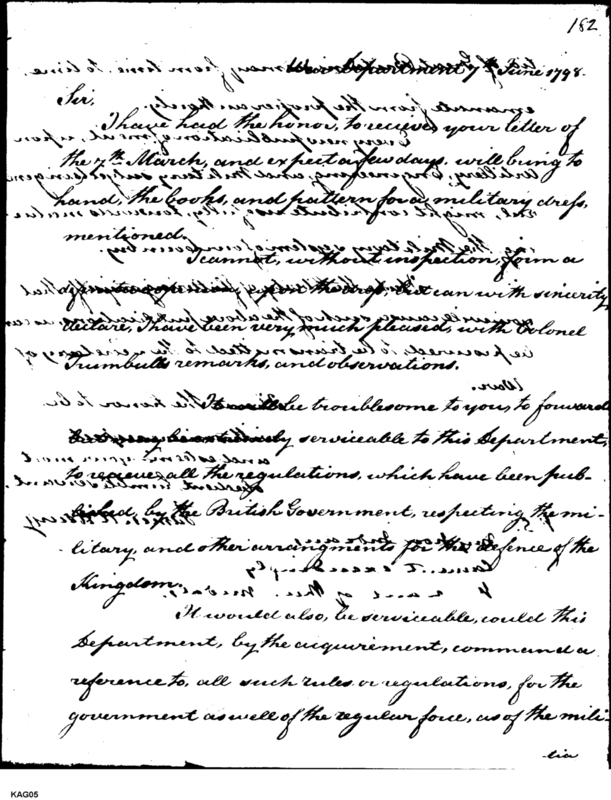 182
War Department 7th June 1798.
Sir,
I have had the honor, to receive your letter of
the 7th March, and expect a few days, will bring to
hand, the books, and pattern for a military dress,
mentioned.
I cannot, without inspection, form a
the dress, but can with sincerity
declare, I have been very much pleased, with Colonel
Trumbulls remarks, and observations.
be troublesome to you, to forward
serviceable to this Department,
to receive, all the regulations, which have been pub-
lished, by the British Government, respecting the mi-
litary, and other arrangments for the defence of the
Kingdom.
It would also, be serviceable, could this
Department, by the acquirement, command a
reference to, all such rules or regulations, for the
government as well of the regular force, as of the mili-
tia
KAG05